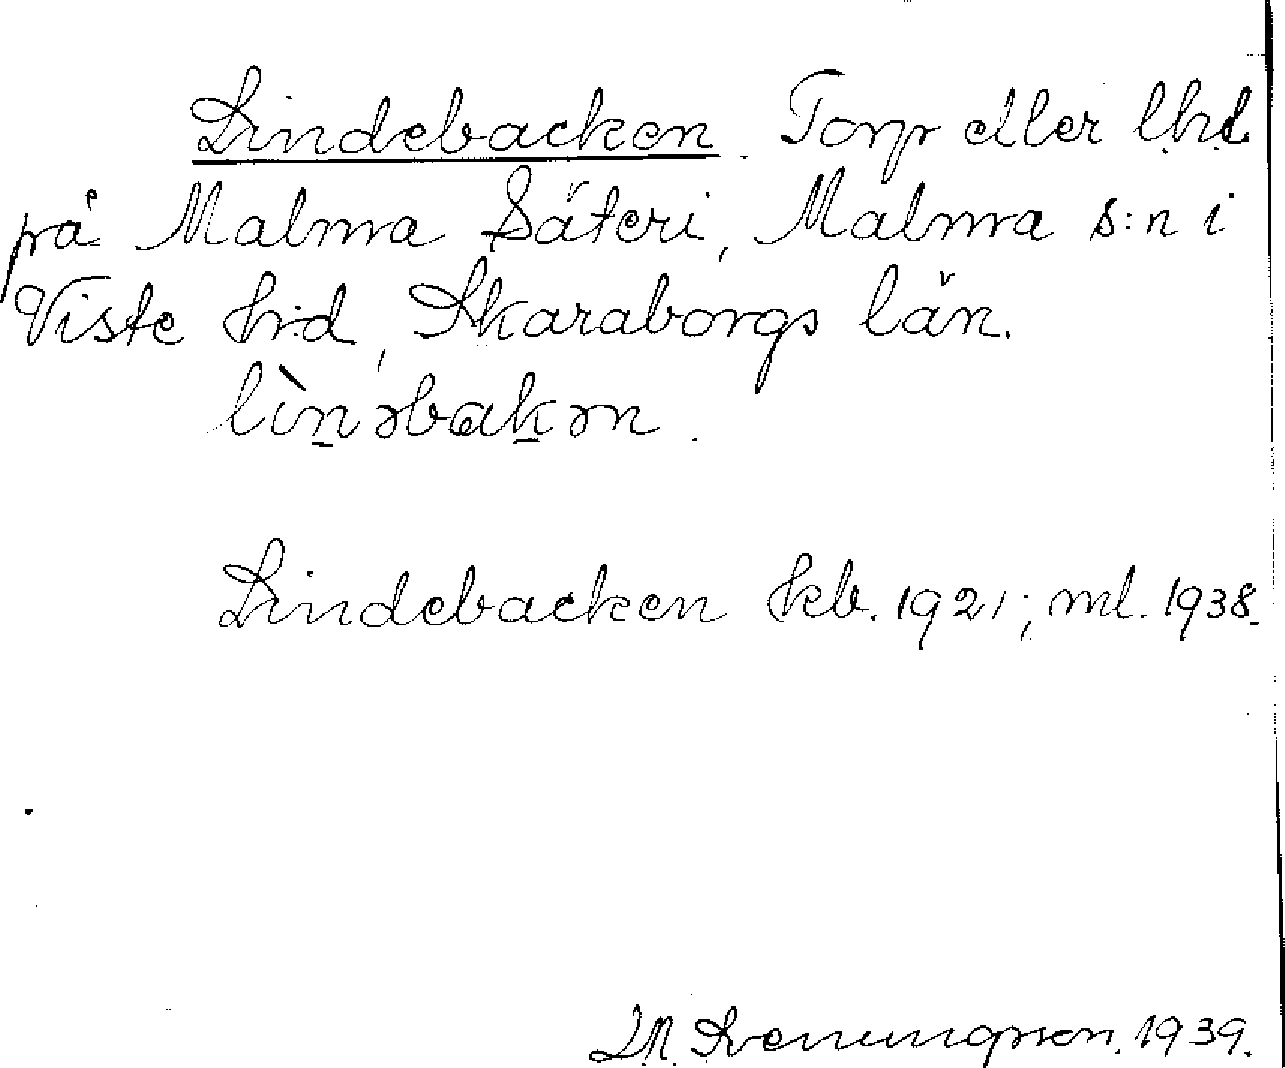 Lindebacken. Torp eller lhl
på Malma Säteri, Malma s:n i
Viste hd, Skaraborgs län.
lìnəbakən.
Lindebacken kb. 1921; ml. 1938.
Svenungsson. 1939.